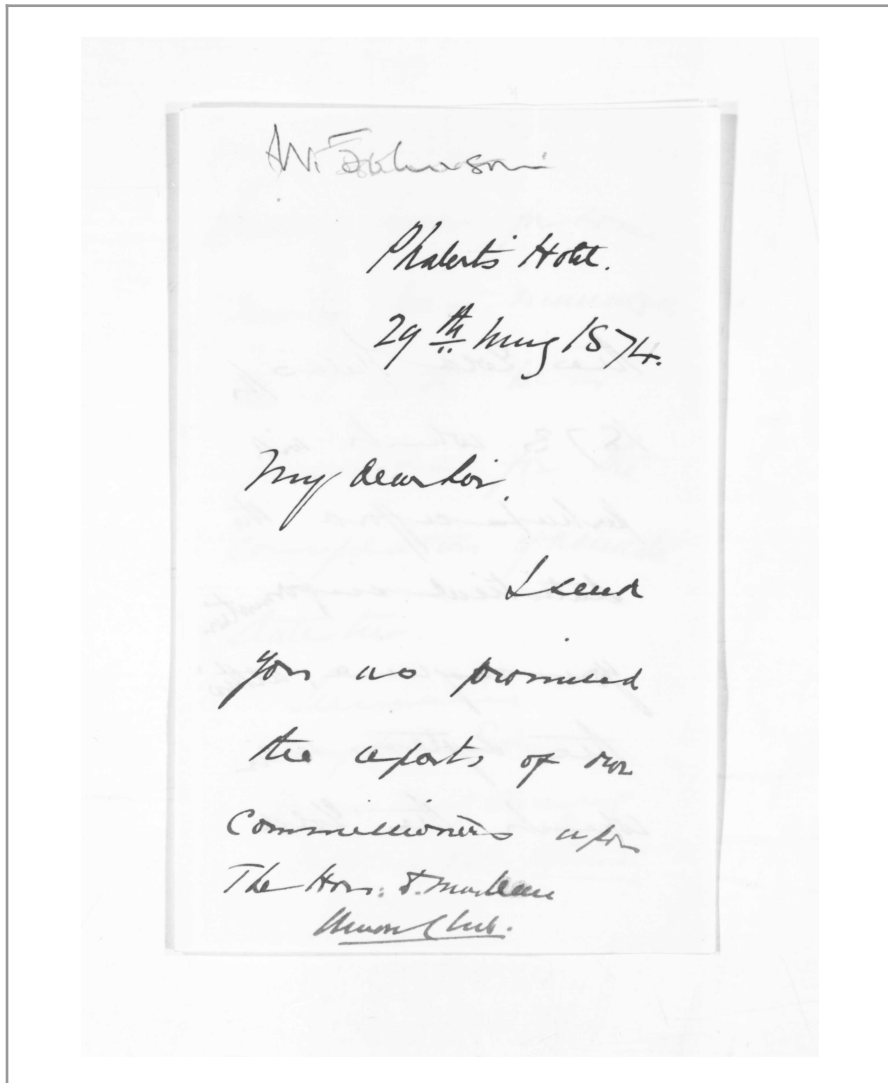 Phaberts Hotel.
29th May 1874.
My dear Sir,
I send
you as promised
the reports of our
Commissioners upon
The Hon: D. McLean
Union Club.